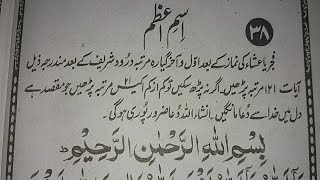 اسم اعظم
۳۸
فجر یا عشاء کی نماز کے بعد اول و آخر گیارہ مرتبہ درود شریف کے بعد مندرجہ ذیل
آیات ۱۲۱ مرتبہ پڑھیں۔ اگر نہ پڑھ سکیں تو کم از کم ۲۱ مرتبہ پڑھیں جو مقصد ہے
دل میں خدا سے دعا مانگیں۔ انشاء اللہ دعا ضرور پوری ہوگی۔
بِسْمِ اللّٰهِ الرَّحْمٰنِ الرَّحِيْمِ